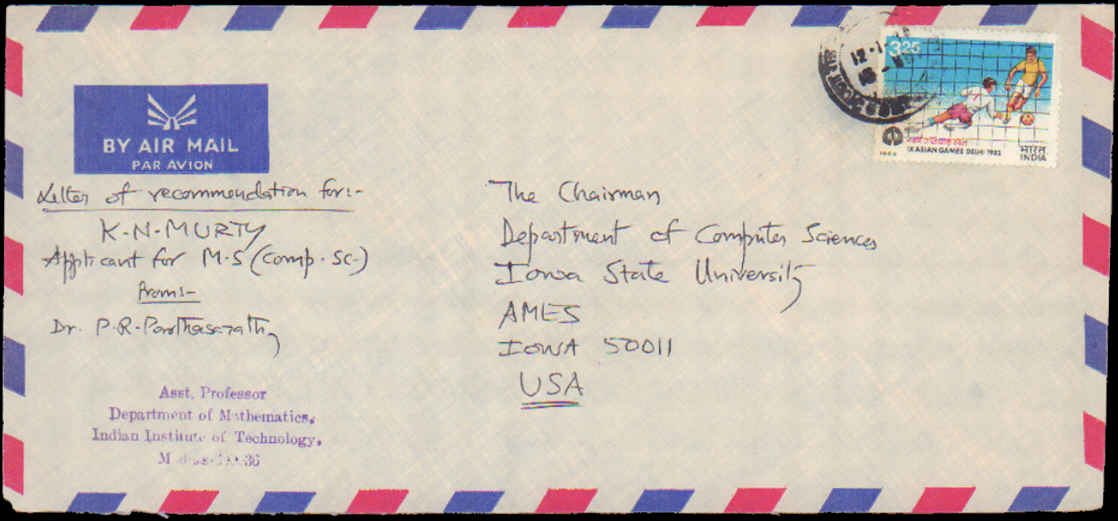 BY AIR MAIL
PAR AVION
Letter of recommendation for:-
K-N-MURTY
Applicant for M.S (Comp. Sc.)
From:-
Dr. P.R. Parthasarathy
Asst. Professor
Department of Mathematics,
Indian Institute of Technology,
The Chairman
Department of Computer Sciences
Iowa State University
AMES
IOWA 50011
USA
325
IX ASIAN GAMES DELHI 1982
भारत
INDIA